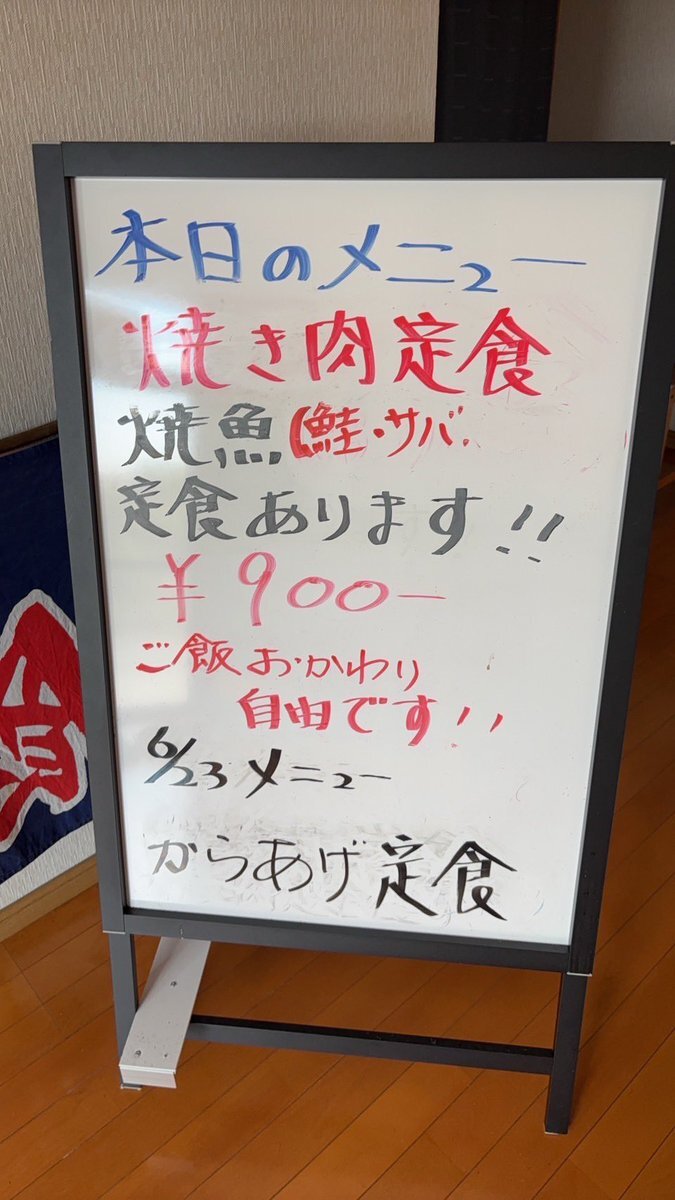 本日のメニュー
焼き肉定食
焼魚(鮭・サバ
定食あります!!
¥900ー
ご飯おかわり
自由です!!
6/23メニュー
からあげ定食